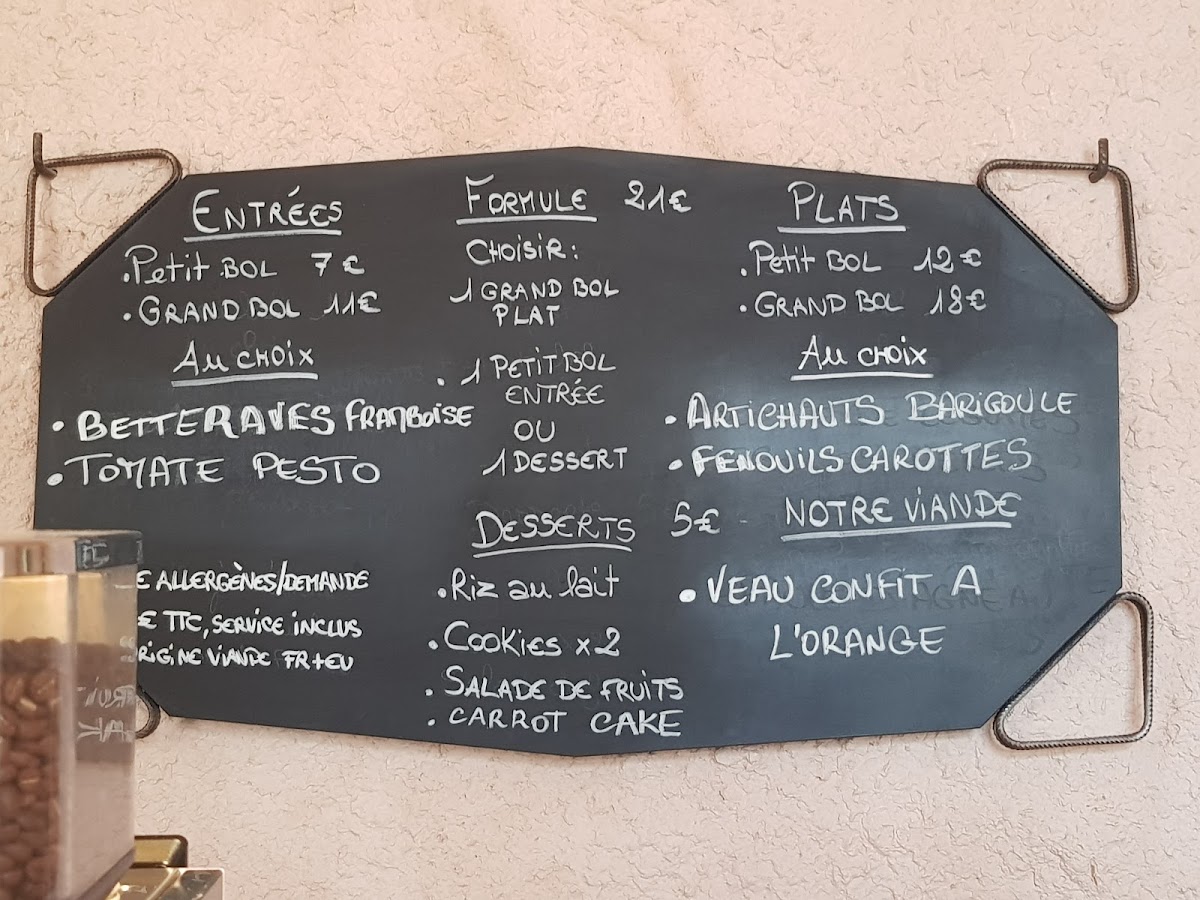 ENTRÉES
.Petit BOL 7€
.GRAND BOL 11€
Au CHOIX
• BETTERAVES FRAMBOISE
• TOMATE PESTO
ALLERGÈNES/DEMANDE
€ TTC, SERVICE INCLUS
RIGINE VIANDE FR+EU
FORMULE 21€
CHOISIR:
1 GRAND BOL
PLAT
. 1 PETIT BOL
ENTRÉE
OU
1 DESSERT
DESSERTS 5€ -
.Riz au lait
.Cookies x2
. SALADE DE FRUITS
. CARROT CAKE
PLATS
.Petit BOL 12€
.GRAND BOL 18€
Au CHOIX
• ARTICHAUTS BARIGOULE
• FENOUILS CAROTTES
NOTRE VIANDE
• VEAU CONFIT A
L'ORANGE